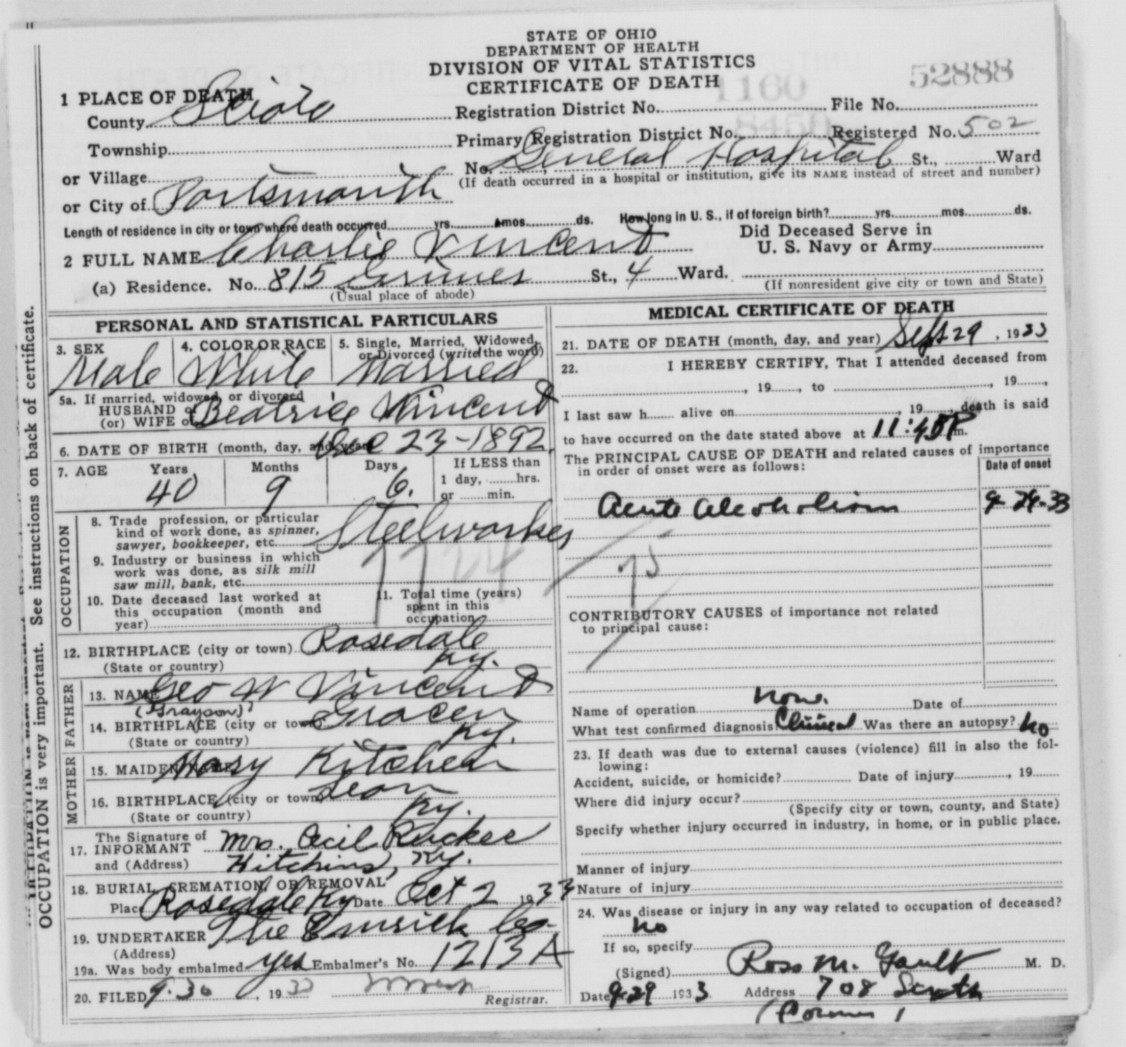 STATE OF OHIO
DEPARTMENT OF HEALTH
DIVISION OF VITAL STATISTICS
CERTIFICATE OF DEATH
1 PLACE OF DEATH
County Scioto
Registration District No. 1160 File No. 52888
Township
Primary Registration District No. 8459 Registered No. 502
or Village
No. General Hospital St., Ward
(If death occurred in a hospital or institution, give its NAME instead of street and number)
or City of Portsmouth
Length of residence in city or town where death occurred yrs. mos. ds. How long in U. S., if of foreign birth? yrs. mos. ds.
2 FULL NAME Charlie Vincent
Did Deceased Serve in
U. S. Navy or Army
(a) Residence. No. 815 Grimes St., 4 Ward.
(Usual place of abode)
(If nonresident give city or town and State)
PERSONAL AND STATISTICAL PARTICULARS
3. SEX 4. COLOR OR RACE 5. Single, Married, Widowed, or Divorced (write the word)
Male White Married
5a. If married, widowed, or divorced
HUSBAND of
(or) WIFE of Beatrice Vincent
6. DATE OF BIRTH (month, day, and year) Dec 23-1892.
7. AGE Years Months Days If LESS than
1 day, hrs.
or min.
40 9 6.
OCCUPATION
8. Trade profession, or particular
kind of work done, as spinner,
sawyer, bookkeeper, etc. Steelworker
9. Industry or business in which
work was done, as silk mill
saw mill, bank, etc.
7724
10. Date deceased last worked at
this occupation (month and
year)
11. Total time (years)
spent in this
occupation
12. BIRTHPLACE (city or town) Rosedale
(State or country) Ky.
FATHER
13. NAME Geo W Vincent
(Grayson)
14. BIRTHPLACE (city or town) Gracen
(State or country) Ky.
MOTHER
15. MAIDEN Mary Kitchen
16. BIRTHPLACE (city or town) Leon
(State or country) Ky.
17. The Signature of
INFORMANT Mrs. Cecil Rucker
and (Address) Hitchins, Ky.
18. BURIAL, CREMATION, OR REMOVAL
Place Rosedale Ky Date Oct 2 1933
19. UNDERTAKER The Emrick Co.
(Address)
19a. Was body embalmed yes Embalmer's No. 1213A
20. FILED 9-30, 1933
Registrar.
MEDICAL CERTIFICATE OF DEATH
21. DATE OF DEATH (month, day, and year) Sept 29, 1933
22. I HEREBY CERTIFY, That I attended deceased from
, 19 , to , 19 ,
I last saw h alive on , 19 death is said
to have occurred on the date stated above at 11:45P m.
The PRINCIPAL CAUSE OF DEATH and related causes of importance
in order of onset were as follows:
Date of onset
Acute Alcoholism 9-29-33
75
CONTRIBUTORY CAUSES of importance not related
to principal cause:
Name of operation None. Date of
What test confirmed diagnosis Clinical Was there an autopsy? No
23. If death was due to external causes (violence) fill in also the fol-
lowing:
Accident, suicide, or homicide? Date of injury , 19
Where did injury occur?
(Specify city or town, county, and State)
Specify whether injury occurred in industry, in home, or in public place.
Manner of injury
Nature of injury
24. Was disease or injury in any way related to occupation of deceased?
No
If so, specify
(Signed) Ross M. Gault M. D.
Date 9-29 1933 Address 708 Sixth
(Coroner)
OCCUPATION is very important. See instructions on back of certificate.